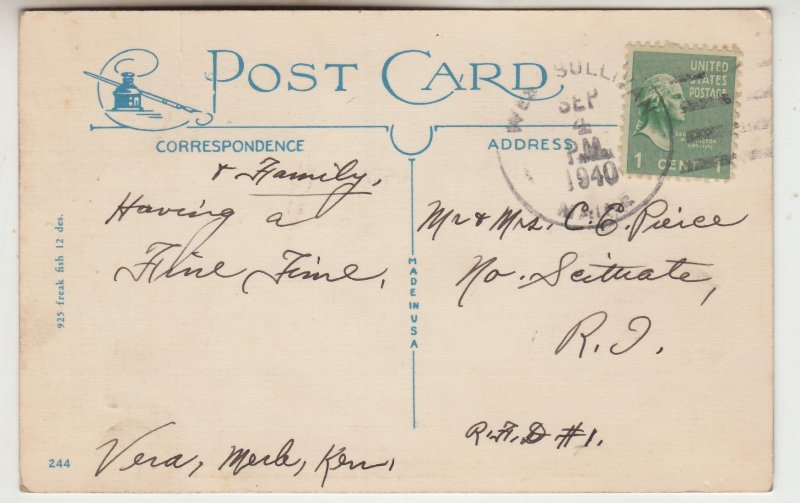 POST CARD
CORRESPONDENCE
ADDRESS
WEST SULLIVAN
SEP
4
PM
1940
MAINE
UNITED
STATES
POSTAGE
1 CENT 1
& Family,
Having a
Fine Time,
Vera, Merle, Ken,
Mr & Mrs. C. E. Pierce
No. Scituate,
R.I.
R.F.D #1.
MADE IN USA
925 freak fish 12 des.
244